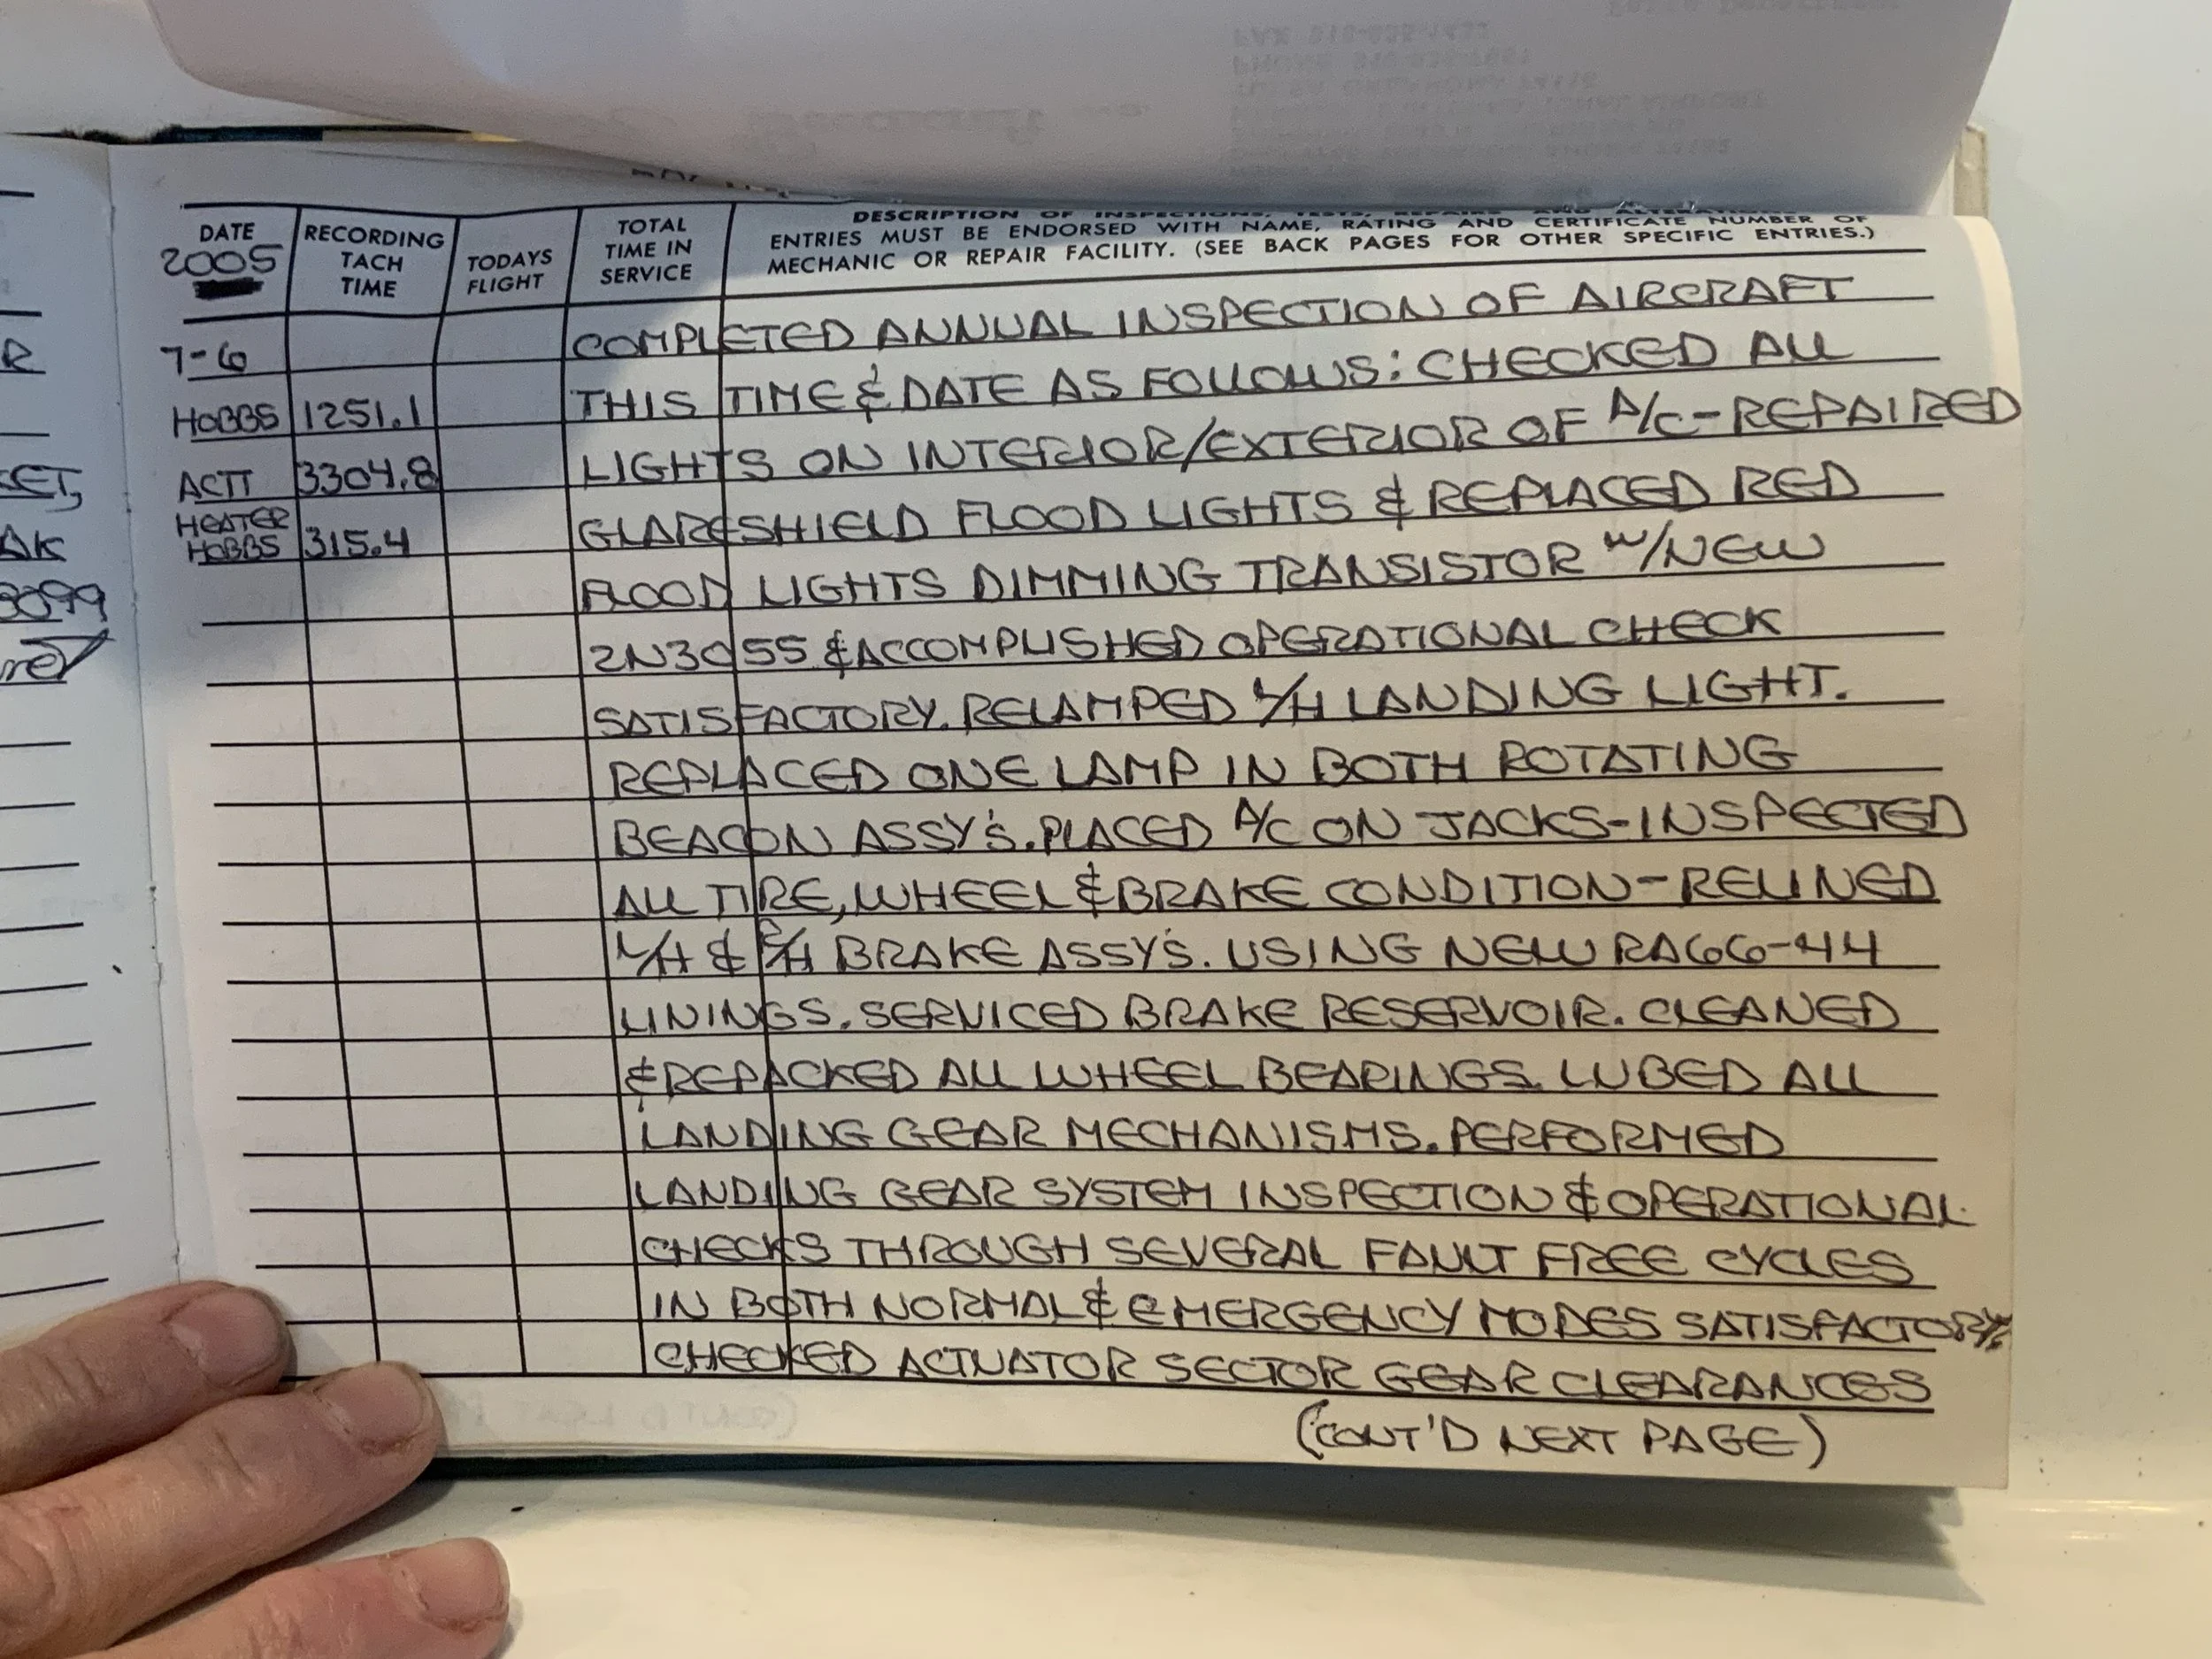 DATE
2005
RECORDING TACH TIME
TODAYS FLIGHT
TOTAL TIME IN SERVICE
DESCRIPTION OF INSPECTIONS, TESTS, REPAIRS AND ALTERATIONS
ENTRIES MUST BE ENDORSED WITH NAME, RATING AND CERTIFICATE NUMBER OF
MECHANIC OR REPAIR FACILITY. (SEE BACK PAGES FOR OTHER SPECIFIC ENTRIES.)
7-6 COMPLETED ANNUAL INSPECTION OF AIRCRAFT
HOBBS 1251.1 THIS TIME & DATE AS FOLLOWS: CHECKED ALL
ACTT 3304.8 LIGHTS ON INTERIOR/EXTERIOR OF A/C-REPAIRED
HEATER HOBBS 315.4 GLARESHIELD FLOOD LIGHTS & REPLACED RED
FLOOD LIGHTS DIMMING TRANSISTOR W/NEW
2N3055 & ACCOMPLISHED OPERATIONAL CHECK
SATISFACTORY. RELAMPED L/H LANDING LIGHT.
REPLACED ONE LAMP IN BOTH ROTATING
BEACON ASSY'S. PLACED A/C ON JACKS-INSPECTED
ALL TIRE, WHEEL & BRAKE CONDITION-RELINED
L/H & R/H BRAKE ASSY'S. USING NEW RA66-44
LININGS. SERVICED BRAKE RESERVOIR. CLEANED
& REPACKED ALL WHEEL BEARINGS. LUBED ALL
LANDING GEAR MECHANISMS. PERFORMED
LANDING GEAR SYSTEM INSPECTION & OPERATIONAL
CHECKS THROUGH SEVERAL FAULT FREE CYCLES
IN BOTH NORMAL & EMERGENCY MODES SATISFACTORY.
CHECKED ACTUATOR SECTOR GEAR CLEARANCES
(CONT'D NEXT PAGE)